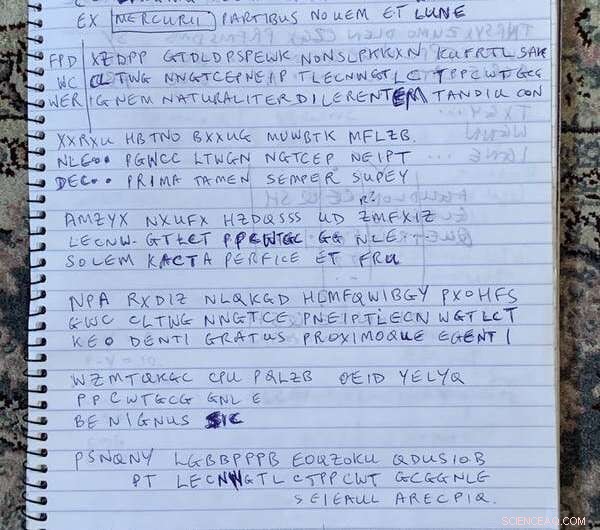 EX MERCURII PARTIBUS NOUEM ET LUNE
FPD XZDPP GTDLDPSPEWK NONSLPKKXN KUFRTL
WC CLTWG NNGTCEPNEIP TLECNNGTLCT PPCWTGCG
WER IGNEM NATURALITER DILERENTEM TANDIU CON
XXRXU HBTNO BXXUG MUWBTK MFLZB.
NLE.. PGWCC LTWGN NGTCEP NEIPT
DEC.. PRIMA TAMEN SEMPER SUPEY
R?
AMZYX NXUFX HZDQSSS UD ZMFXIZ
LECNW. GTLCT PPCWTGC GG NLE
SOLEM KACTA PERFICE ET FRU
NPA RXDIZ NLQKGD HLMFQWIBGY PXOHFS
GWC CLTWG NNGTCE PNEIPTLECN WGTLCT
KEO DENTI GRATUS PROXIMOQUE EGENTI
WZMTQKGC CPU PQLZB OEID YELYQ
PPCWTGCG GNLE
BENIGNUS SIC
PSNQNY LGBBPPPB EOQZOKU QDUSIOB
PT LECNNGTL CTPPCWT GCGGNLE
SEIEAUL ARECPIQ.
SCIENCEAQ.COM